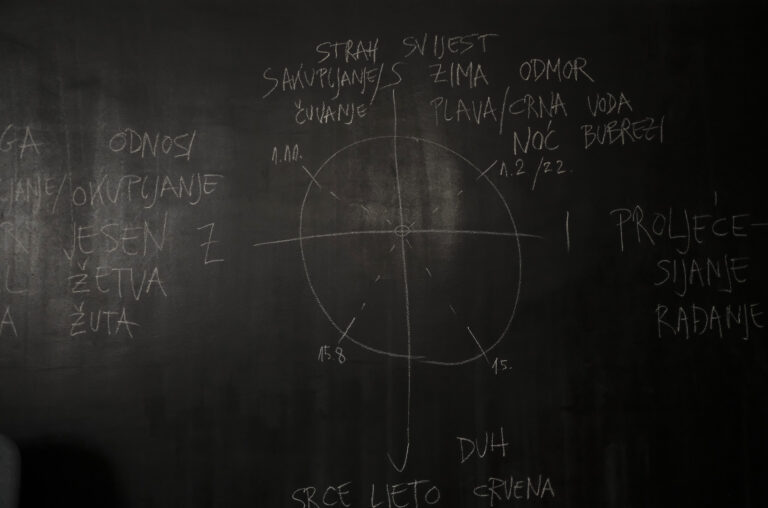 STRAH SVIJEST
SAKUPLJANJE/S ZIMA ODMOR
ČUVANJE PLAVA/CRNA VODA
NOĆ BUBREZI
1.11.
1.2/22.
GA ODNOSI
JANJE/OKUPLJANJE
R JESEN Z
L ŽETVA
A ŽUTA
I PROLJEĆE-
SIJANJE
RAĐANJE
15 8
15.
DUH
SRCE LJETO CRVENA